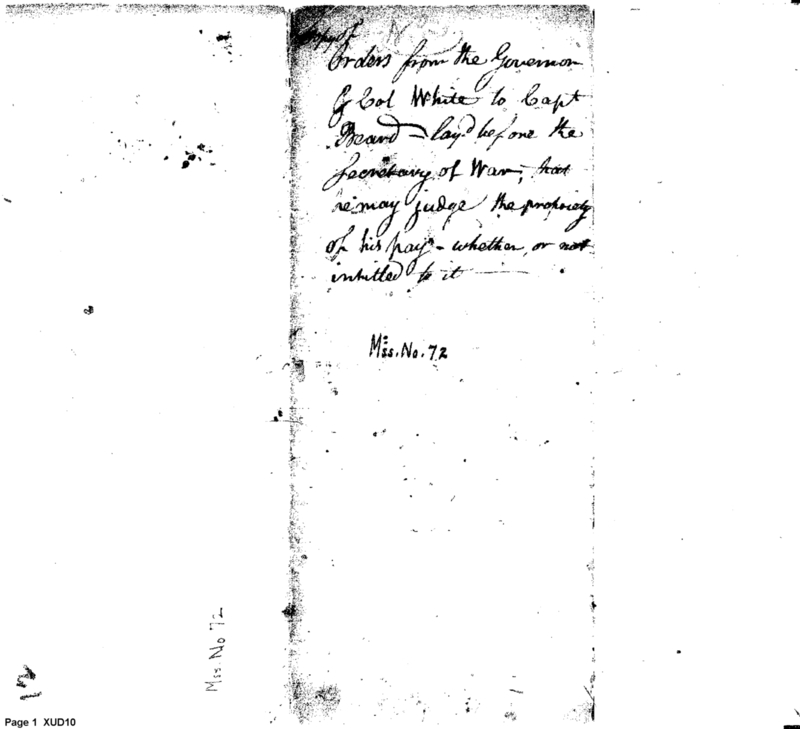 Copy of
Orders from the Governor
& Col White to Capt
Beard – lay'd before the
Secretary of War, that
he may judge the propriety
of his pay – whether, or not
intitled to it
Mss. No. 72
Mss. No 72
Page 1 XUD10